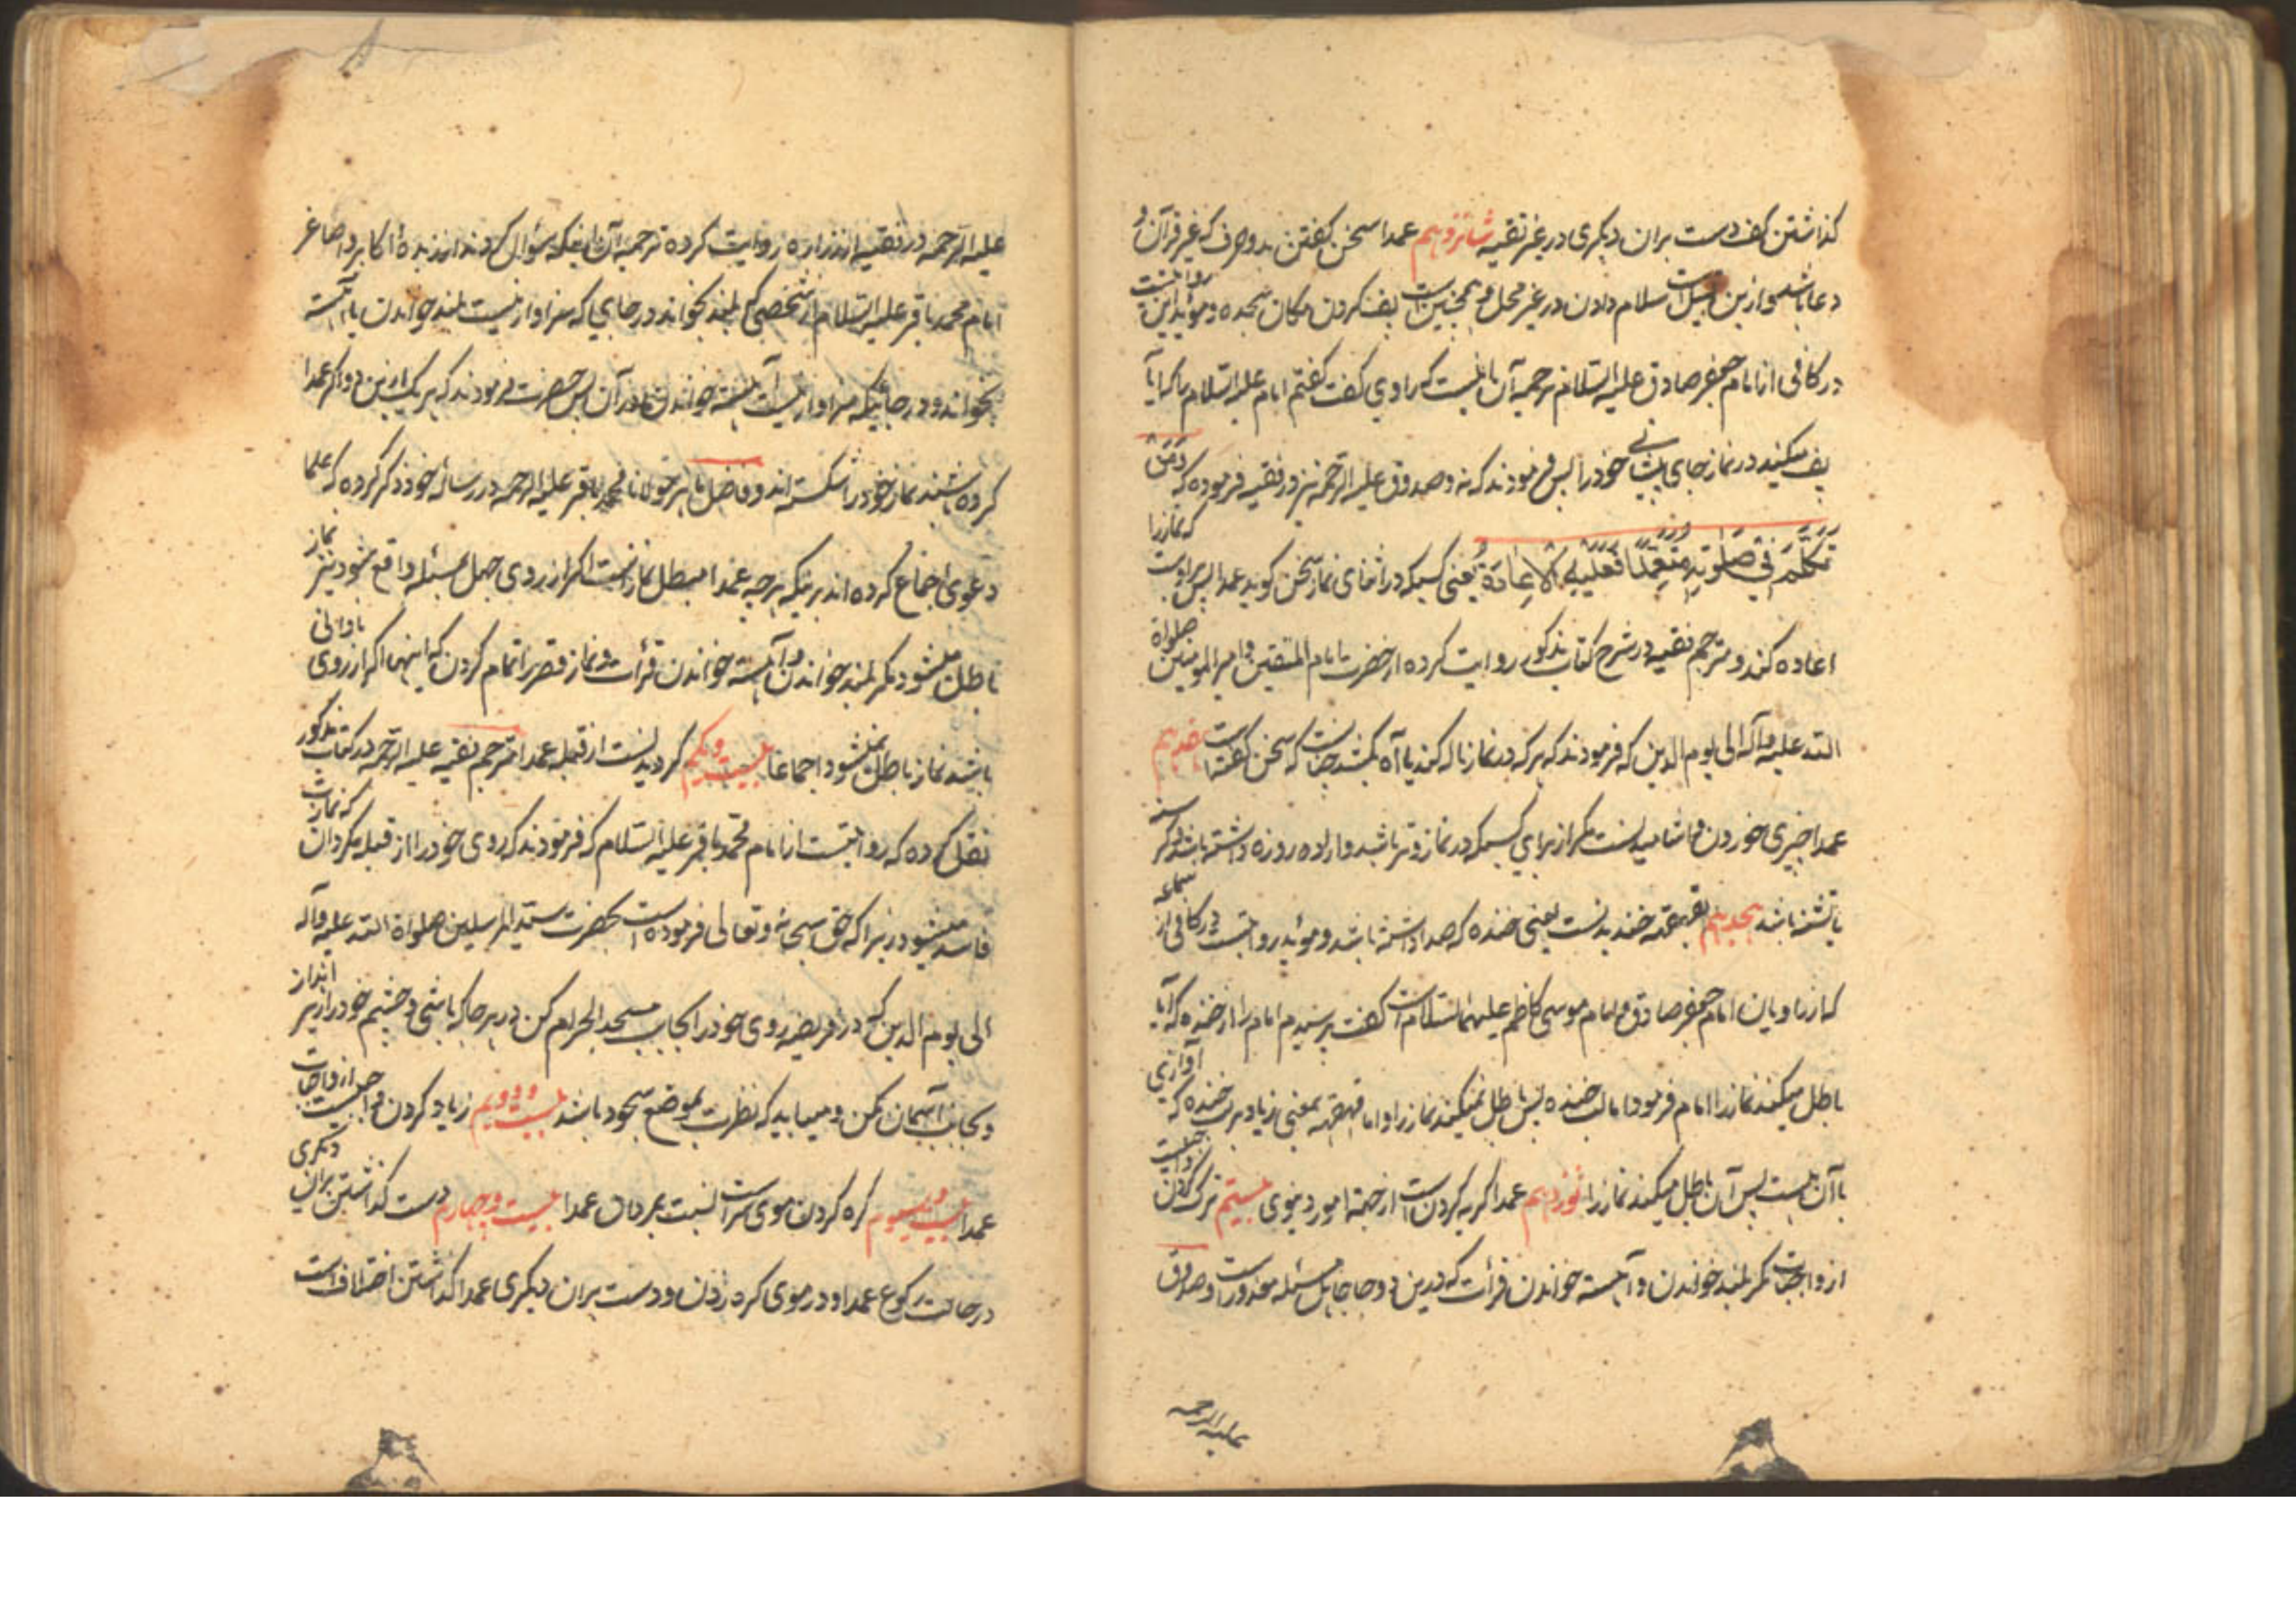 کذاشتن کف دست بران دیکری در غیر تقیه شانزدهم عمدا سخن کفتن بدو حرف که غیر قرآن و
دعا باشد و ازین قبیل است سلام دادن در غیر محل و همچنین است پف کردن مکان سجده و مؤید این روایتست
در کافی از امام جعفر صادق علیه السلام ترجمه آن باینست که راوی کفت کفتم امام علیه السلام را که آیا
پف میکند در نماز جای پیشانی خود را پس فرمودند که نه و صدوق علیه الرحمه نیز در فقیه فرموده که وَمَنْ
تَکَلَّمَ فِی صَلٰوتِهِ مُتَعَمِّدًا فَعَلَیْهِ الْاِعَادَةُ یعنی کسیکه در اثنای نماز سخن کوید عمدا پس براوست که نماز را
اعاده کند و مترجم فقیه در شرح کتاب مذکور روایت کرده از حضرت امام المتقین و امیر المومنین صلواة
الله علیه و آله الی یوم الدین که فرمودند که هر که در نماز ناله کند یا آه بکشد چنانست که سخن کفته است هفدهم
عمدا چیزی خوردن و اشامیدنست مکر از برای کسیکه در نماز وتر باشد و اراده روزه داشته باشد و کر
یا تشنه باشد هجدهم بقهقهه خندیدنست یعنی خنده که صدا داشته باشد و موید روایتست در کافی از سماعه
که از راویان امام جعفر صادق و امام موسی کاظم علیهما السلام است کفت پرسیدم امام را از خنده که آیا
باطل میکند نماز را امام فرمود اما لب خنده پس باطل نمیکند نماز را و اما قهقهه یعنی زیاد بر لب خنده که آوازی
با آن هست پس آن باطل میکند نماز را نوزدهم عمدا کریه کردن است از جهة امور دنیوی بیستم ترک کردن واجبیست
از واجبات مکر بلند خواندن و آهسته خواندن قرأت که درین دو جا جاهل مسئله معذور است و صدوق
علیه الرحمه
علیه الرحمه در فقیه از زراره روایت کرده ترجمه آن اینکه سؤال کردند از زبده اکابر و اصاغر
امام محمد باقر علیه السلام از شخصی که بلند بخواند در جایی که سزاوار نیست بلند خواندن یا آهسته
بخواند و در جائیکه سزاوار نیست آهسته خواندن در آن پس حضرت فرمودند که هر یک ازین دو اکر عمدا
کرده باشند نماز خود را شکسته اند و فاضل ماهر مولانا محمد باقر علیه الرحمه در رساله خود ذکر کرده که علما
دعوی اجماع کرده اند بر اینکه هر چه عمدا مبطل نماز است اکر از روی جهل مسئله واقع شود نیز نماز
باطل میشود مکر بلند خواندن و آهسته خواندن قرأت و نماز قصر را تمام کردن که اینها اکر از روی نادانی
باشد نماز باطل نمیشود اجماعا بیست و یکم کردیدنست از قبله عمدا مترجم فقیه علیه الرحمه در کتاب مذکور
نقل کرده که روایتست از امام محمد باقر علیه السلام که فرمودند که روی خود را از قبله مکردان که نمازت
فاسد میشود زیرا که حق سبحانه و تعالی فرموده است بحضرت سید المرسلین صلواة الله علیه و آله
الی یوم الدین که در فریضه روی خود را بجانب مسجد الحرام کن در هر جا که باشی و چشم خود را زیر انداز
و بجانب آسمان مکن و میباید که نظرت بموضع سجود باشد بیست و دویم زیاد کردن واجبیست از واجبات
عمدا بیست و سیوم کره کردن موی سر است نسبت بمردان عمدا بیست و چهارم دست کذاشتن بران دیکری
در حالت رکوع عمدا و در موی کره زدن و دست بران دیکری عمدا کذاشتن اختلاف است